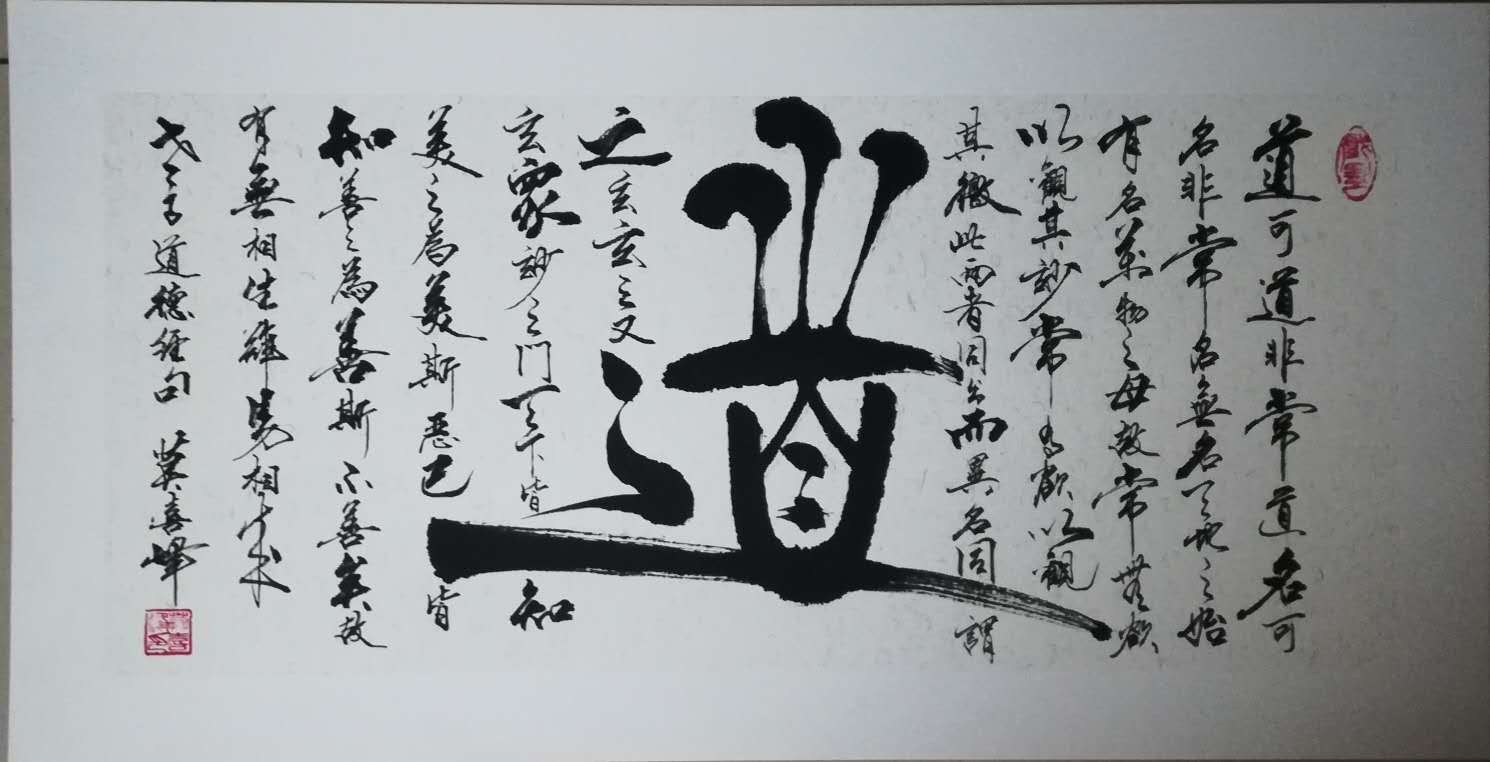 道可道非常道名可
名非常名無名天地之始
有名萬物之母故常無欲
以觀其妙常有欲以觀
其徼此兩者同出而異名同謂
道
之玄玄之又
玄衆妙之門天下皆知
美之為美斯惡已皆
知善之為善斯不善矣故
有無相生難易相成
老子道德經句 喜峰